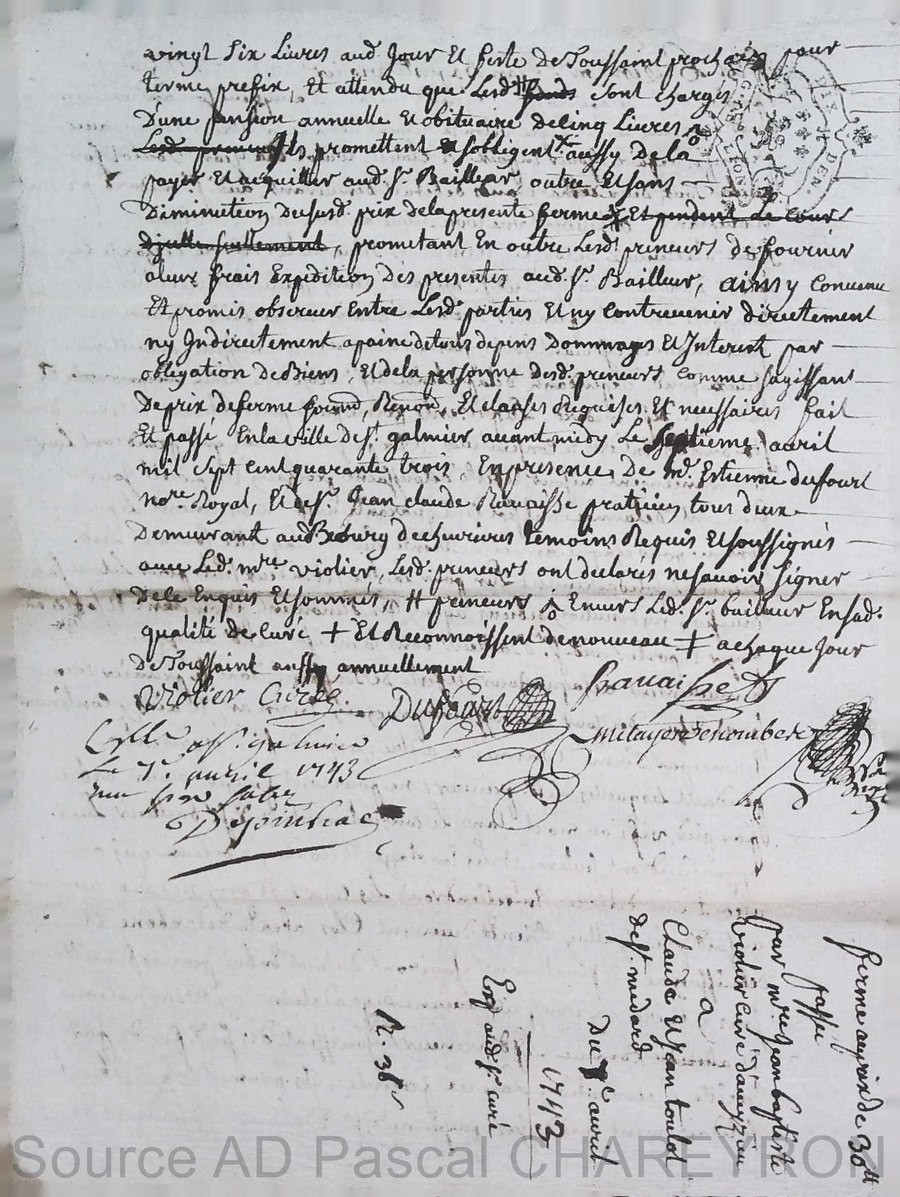 vingt six Livres aud. Jour Et feste de Toussaint prochain pour
terme prefix, Et attendu que Lesd. fonds sont chargés
D'une pension annuelle Et obituaire de Cinq Livres
Lesd. preneurs Ils promettent Et s'obligent aussy De la
payer Et acquitter aud. Sr. Bailleur, outre Et sans
Diminution Du susd. prix de la presente ferme Et pendant Le cours
D'jcelle seullement, prometant En outre Lesd. preneurs de fournir
a leur frais Expedition Des presentes aud. Sr. Bailleur, ainsy Convenu
Et promis observer Entre Lesd. parties Et ny Contrevenir directement
ny Indirectement a paine de tous depens Dommages Et Interest par
obligation De Biens, Et de la personne desd. preneurs Comme sagissant
De prix de ferme Renon. Et clauses Requises Et necessaires fait
Et passé En la ville de St. galmier avant midy Le septieme avril
mil sept cent quarante trois En presence De me. Estienne dufourt
nore. Royal, Et de Sr. Jean claude Ravaisse praticien, tous deux
Demeurant aud. Bourg de chevrieres temoins Requis Et soussignés
avec Led. mre violier, Lesd. preneurs ont declarés ne savoir signer
De ce Enquis Et sommés, # preneurs Envers Led. Sr. bailleur En sad.
qualité de Curé + Et Reconnoissent de nouveau ‡ a chaque Jour
De Toussaint aussy annuellement
Violier Curé Dufourt Ravaisse
a St. galmier
Le avril 1743

ferme au prix de 30#
passé
par mre Jean baptiste
violier curé d'aveyzieu
a
Claude Et Jean toulot
de St. medard
Du avril
1743
Exp aud. Sr. curé